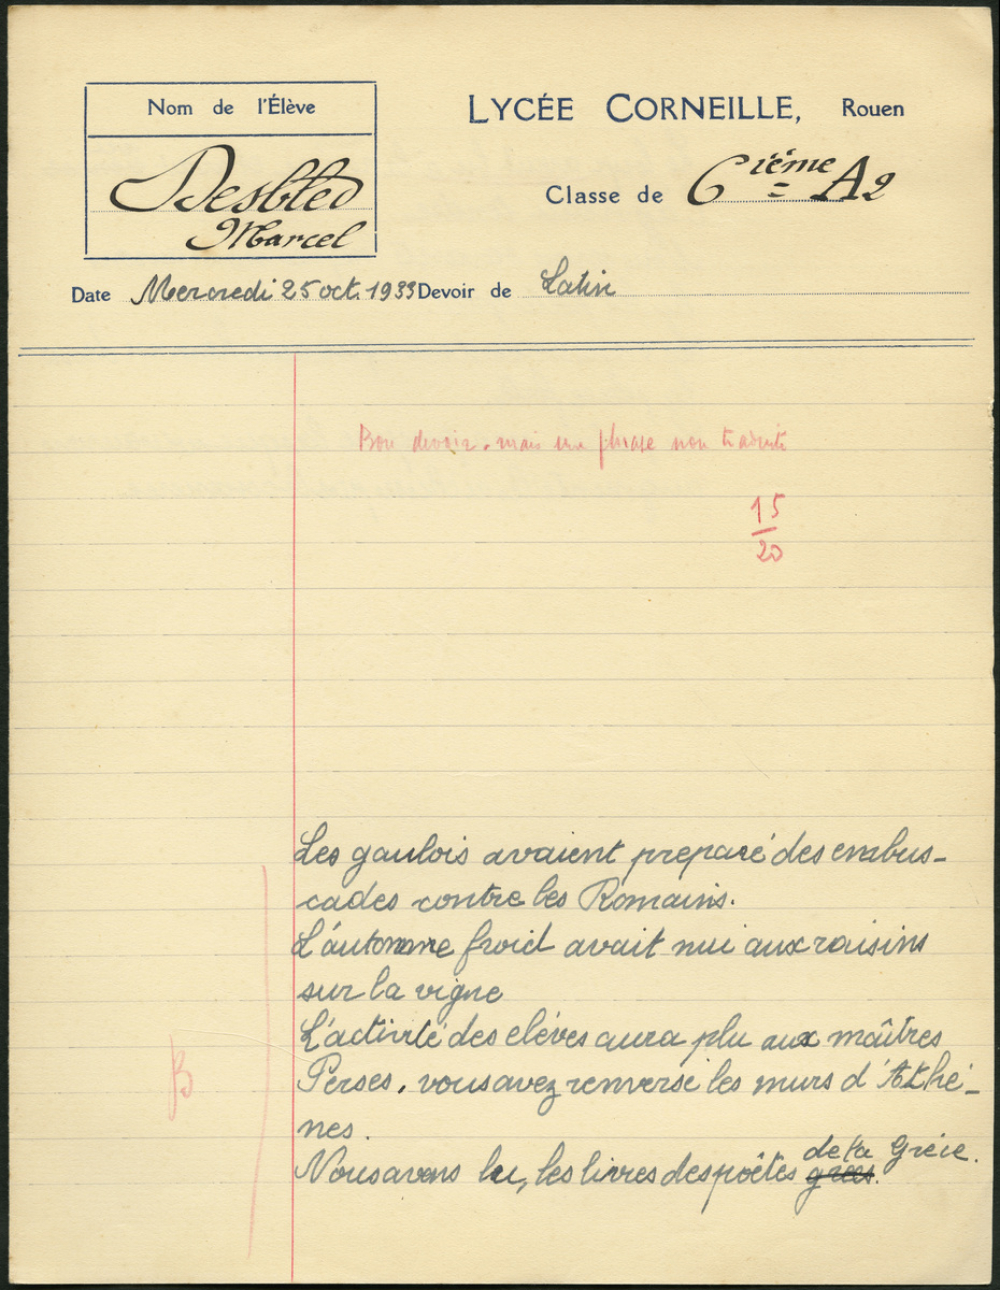 Nom de l'Élève
LYCÉE CORNEILLE, Rouen
Desbled
Marcel
Classe de 6ième A2
Date Mercredi 25 oct. 1933 Devoir de Latin
Bon devoir, mais une phrase non traduite
15
20
Les gaulois avaient preparé des embus-
cades contre les Romains.
L'áutomne froid avait nui aux raisins
sur la vigne
L'activité des eléves aura plu aux maîtres
Perses, vous avez renversé les murs d'Athé-
nes.
de la Gréce.
Nous avons lu, les livres des poêtes grecs.
B